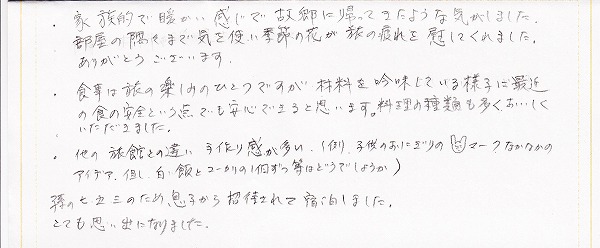 ・家族的で暖かい感じで故郷に帰ってきたような気がしました。
部屋の隅々まで気を使い季節の花が旅の疲れを慰してくれました。
ありがとうございます。
・食事は旅の楽しみのひとつですが材料を吟味している様子は最近
の食の安全という点でも安心できると思います。料理の種類も多くおいしく
いただきました。
・他の旅館との違い手作り感が多い、(例、子供のおにぎりの マーク、なかなかの
アイデア、但し、白い飯と の1個ずつ等はどうでしょうか)
孫の七五三のため息子から招待されて宿泊しました。
とても思い出になりました。